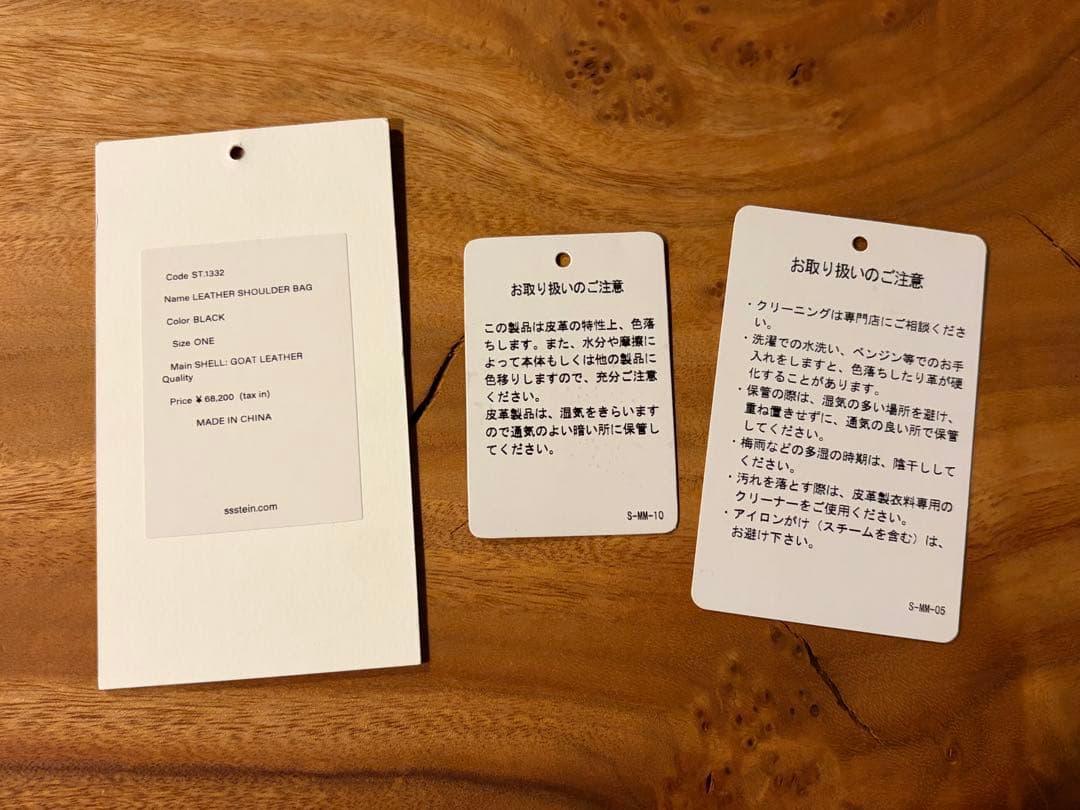 Code ST.1332
Name LEATHER SHOULDER BAG
Color BLACK
Size ONE
Main SHELL: GOAT LEATHER
Quality
Price ¥ 68,200 (tax in)
MADE IN CHINA
ssstein.com
お取り扱いのご注意
この製品は皮革の特性上、色落
ちします。また、水分や摩擦に
よって本体もしくは他の製品に
色移りしますので、充分ご注意
ください。
皮革製品は、湿気をきらいます
ので通気のよい暗い所に保管し
てください。
S-MM-10
お取り扱いのご注意
・クリーニングは専門店にご相談くださ
い。
・洗濯での水洗い、ベンジン等でのお手
入れをしますと、色落ちしたり革が硬
化することがあります。
・保管の際は、湿気の多い場所を避け、
重ね置きせずに、通気の良い所で保管
してください。
・梅雨などの多湿の時期は、陰干しして
ください。
・汚れを落とす際は、皮革製衣料専用の
クリーナーをご使用ください。
・アイロンがけ（スチームを含む）は、
お避け下さい。
S-MM-05